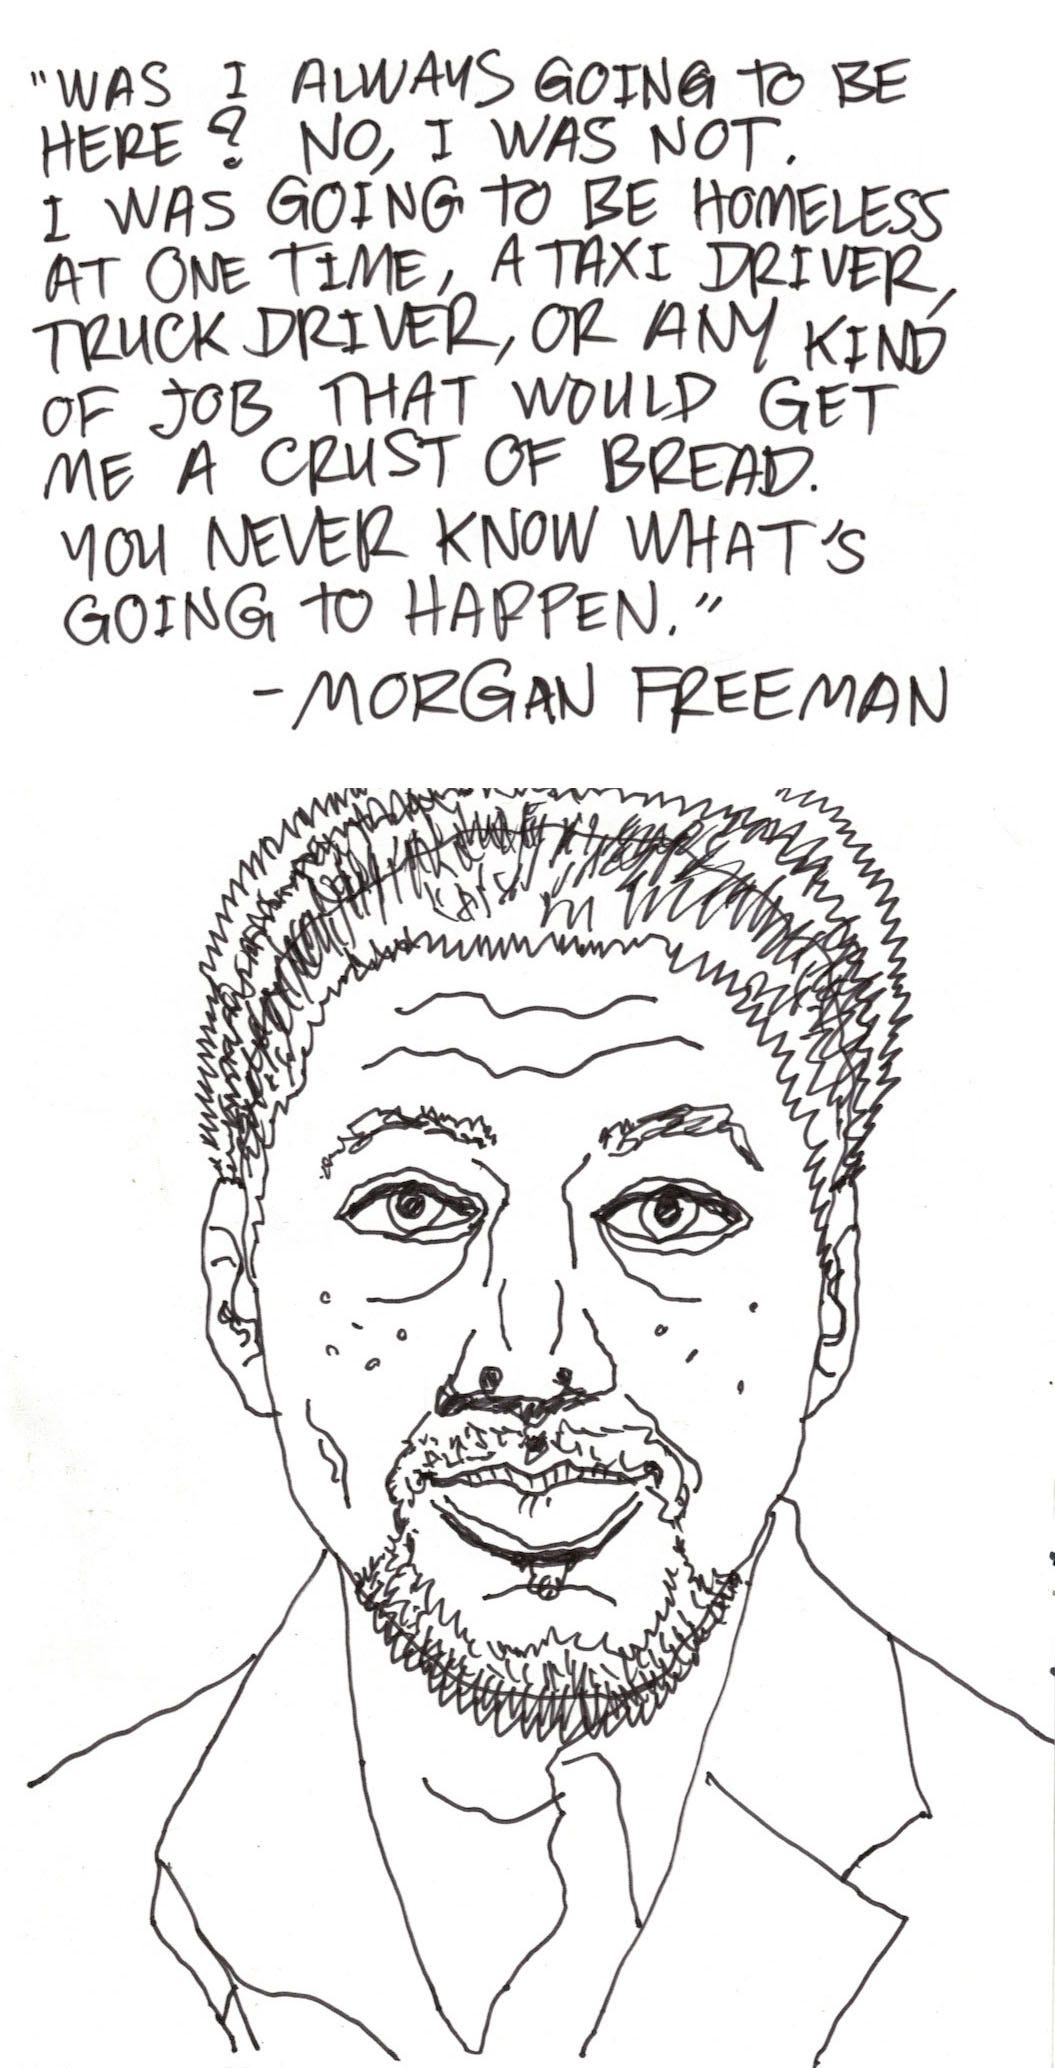 "WAS I ALWAYS GOING TO BE
HERE? NO, I WAS NOT.
I WAS GOING TO BE HOMELESS
AT ONE TIME, A TAXI DRIVER,
TRUCK DRIVER, OR ANY KIND
OF JOB THAT WOULD GET
ME A CRUST OF BREAD.
YOU NEVER KNOW WHAT'S
GOING TO HAPPEN."
-MORGAN FREEMAN